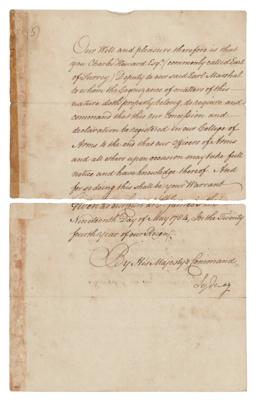 (5)
Our Will and pleasure therefore is that
you Charles Howard Esq. (commonly called Earl
of Surrey) Deputy to our said Earl Marshal
to whom the Cognizance of matters of this
nature doth properly belong, do require and
command that this our Concession and
declaration be registered in our College of
Arms to the end that our Officers of Arms
and all others upon occasion may take full
notice and have knowledge thereof. And
for so doing this shall be your Warrant
Given at our Court at St. James's this
Nineteenth Day of May 1784, In the Twenty
fourth year of our Reign
By His Majesty's Command
Sydney